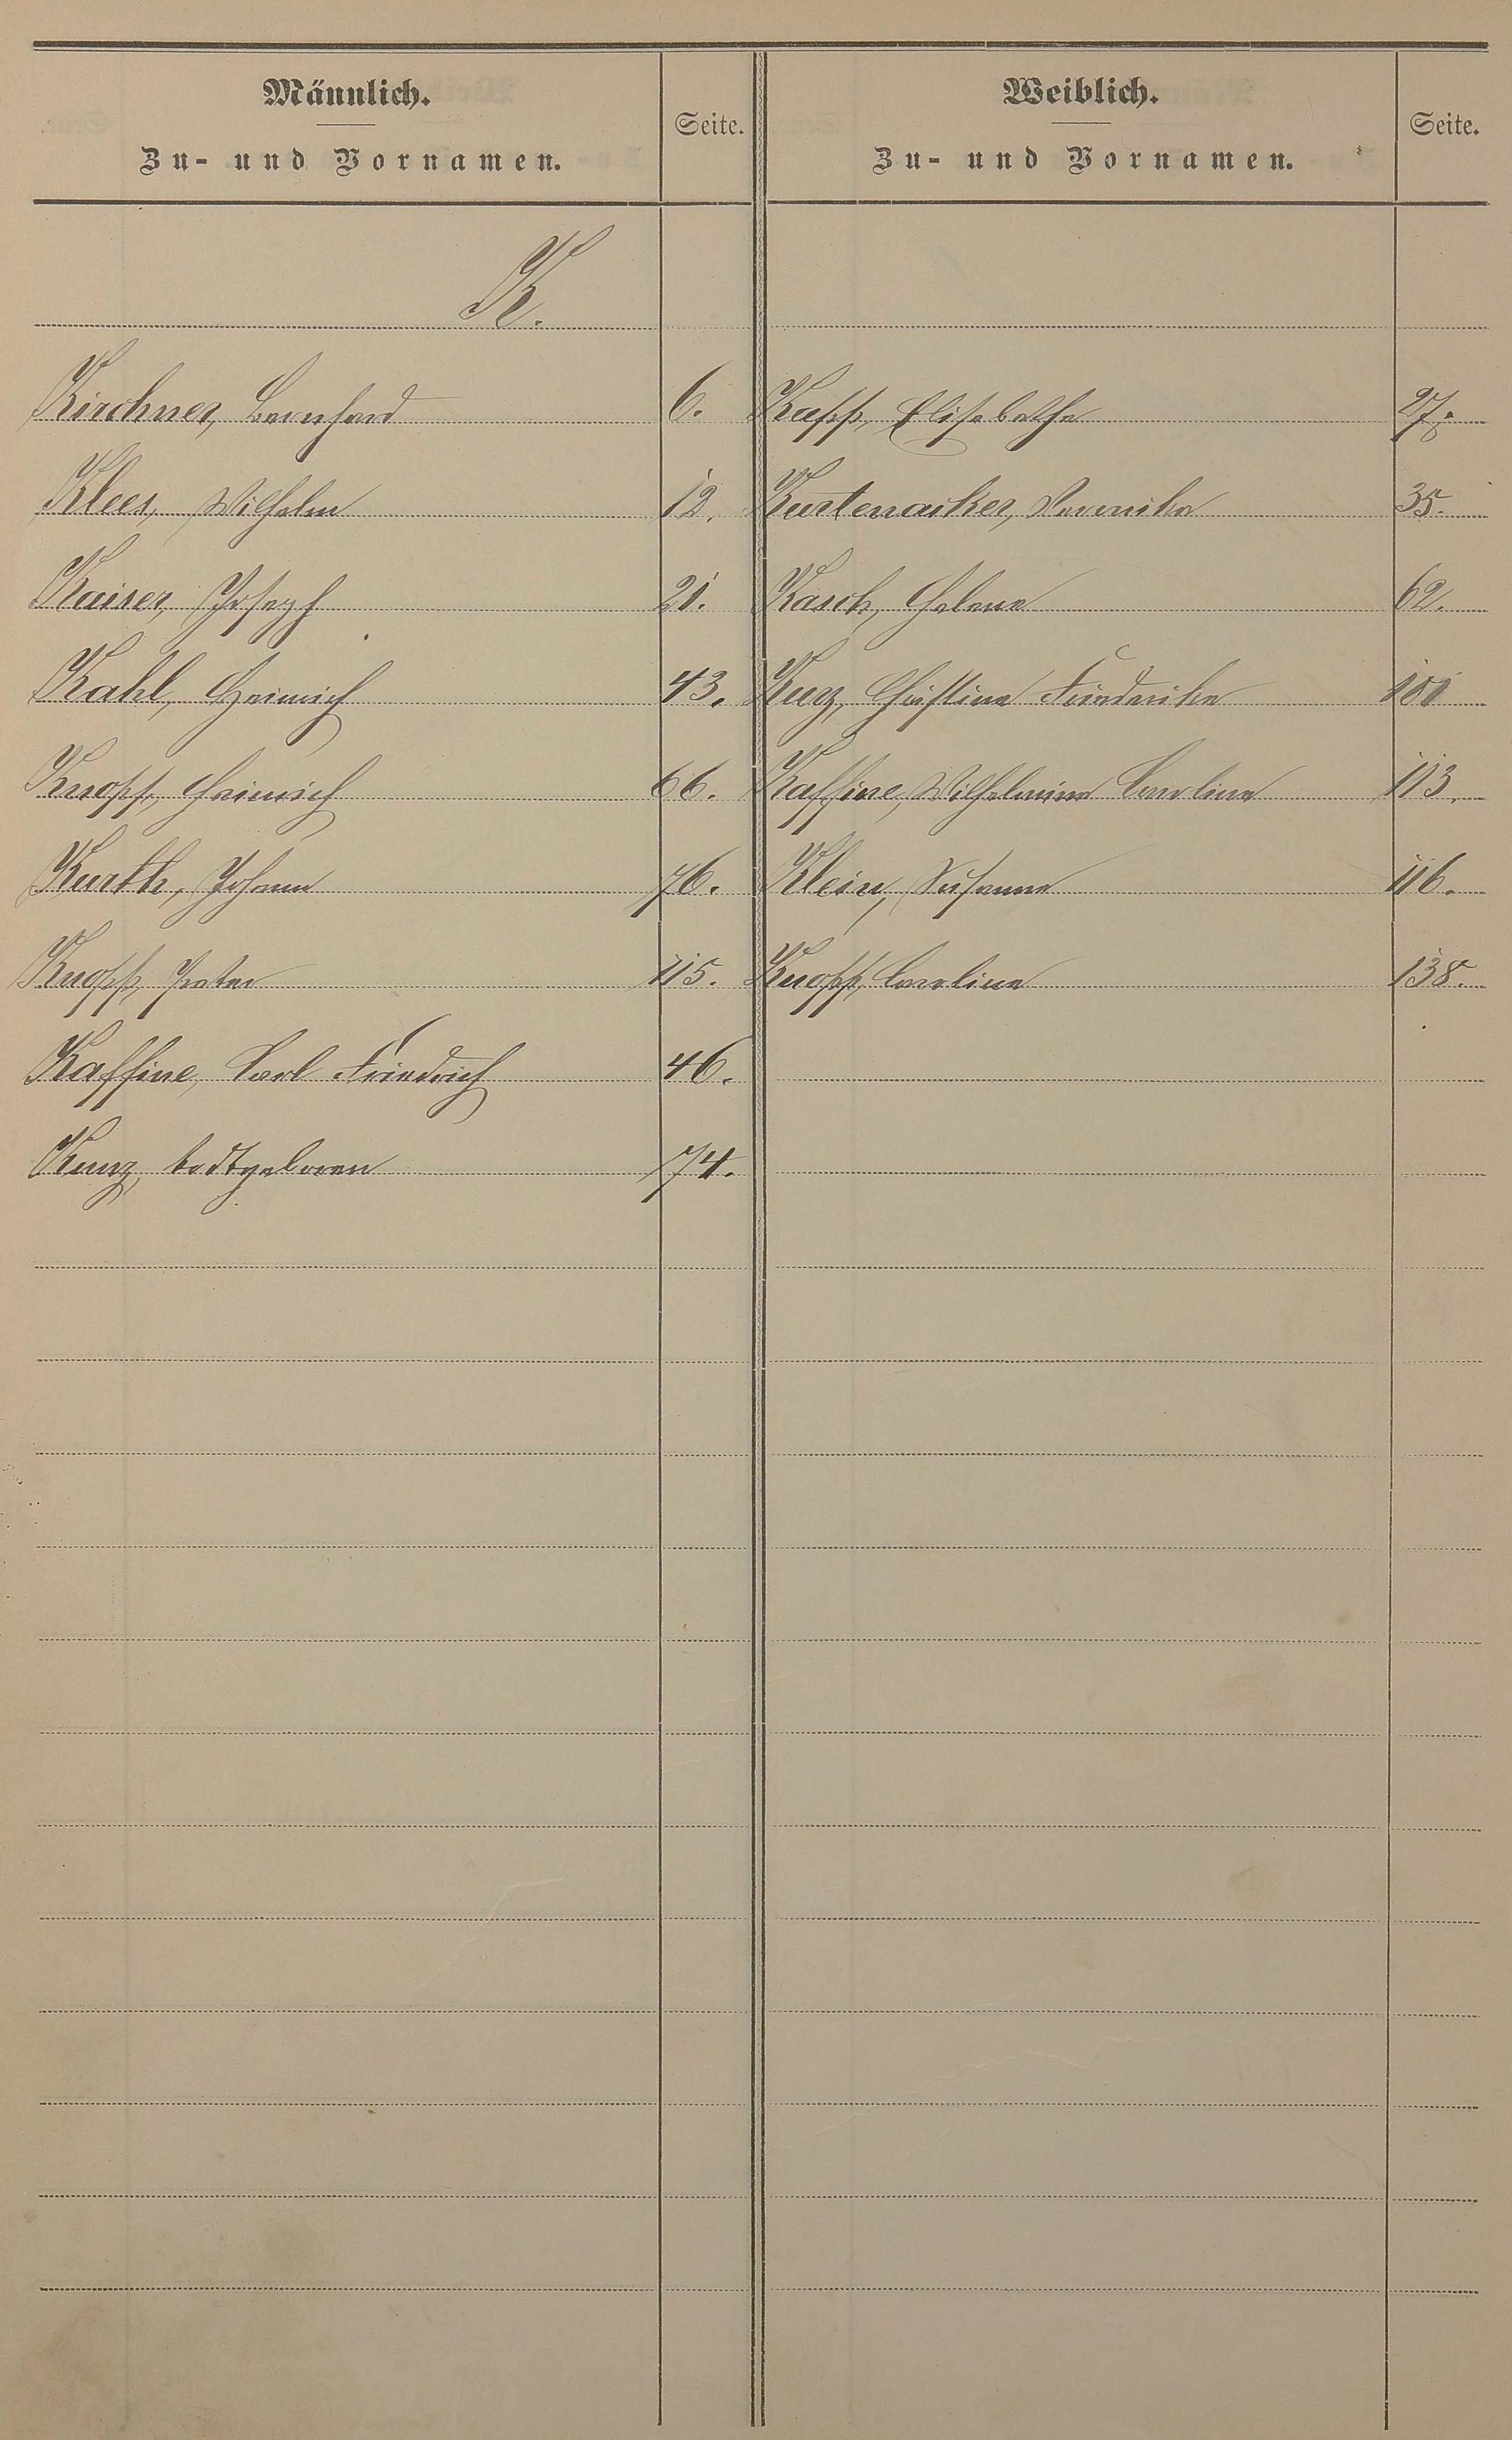 Männlich.
Zu- und Vornamen.
Seite.
Weiblich.
Zu- und Vornamen.
Seite.
K.
Kirchner, Bernhard 6.
Klees, Wilhelm 12.
Kaiser, Joseph 21.
Kahl, Heinrich 43.
Knopp, Heinrich 66.
Kurth, Johann 76.
Knopp, Peter 115.
Kaffine, Carl Friedrich 46.
Kunz, todtgeboren 74.
Kapp, Elisabetha 27.
Kurtenacker, Veronika 35.
Kasch, Helena 62.
Kurz, Christina Friederika 101
Kaffine, Wilhelmina Carolina 113.
Klein, Susanna 116.
Knopp, Carolina 138.